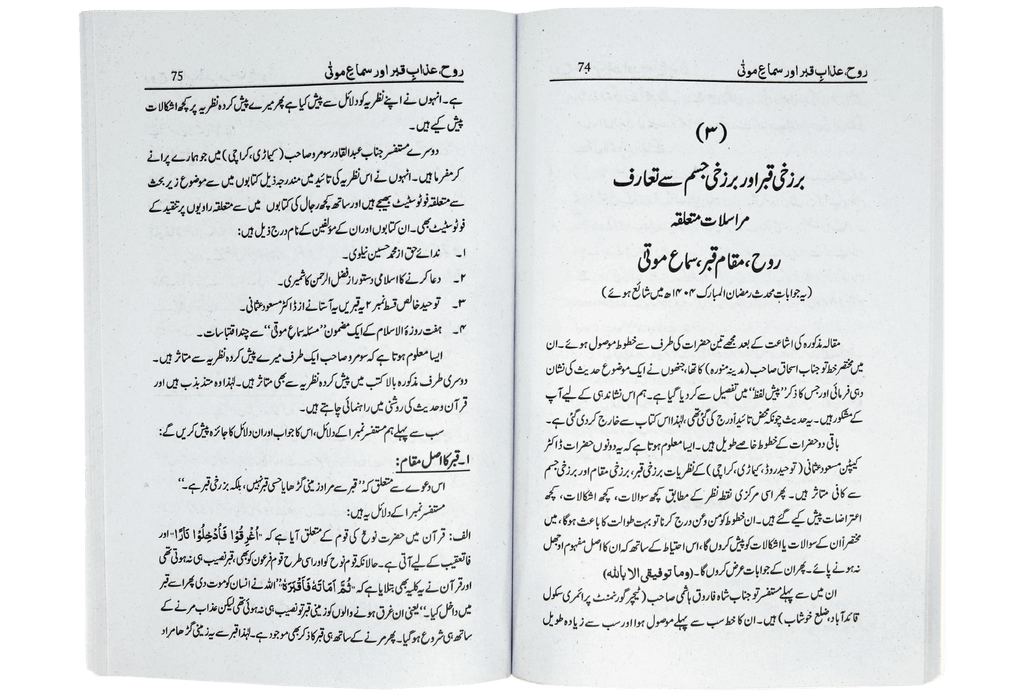 روح، عذابِ قبر اور سماعِ موتٰی 74
(۳)
برزخی قبر اور برزخی جسم سے تعارف
مراسلات متعلقہ
روح، مقام قبر، سماع موتیٰ
(یہ جوابات محدث رمضان المبارک ۱۴۰۴ھ میں شائع ہوئے)
مقالہ مذکورہ کی اشاعت کے بعد مجھے تین حضرات کی طرف سے خطوط موصول ہوئے۔ ان
میں مختصر خط تو جناب اسحاق صاحب (مدینہ منورہ) کا تھا، جنھوں نے ایک موضوع حدیث کی نشان
دہی فرمائی اور جس کا ذکر ’’پیش لفظ‘‘ میں تفصیل سے کر دیا گیا ہے۔ ہم اس نشاندہی کے لیے آپ
کے مشکور ہیں۔ یہ حدیث چونکہ محض تائیداً درج کی گئی تھی، لہٰذا اس کتاب سے خارج کر دی گئی ہے۔
باقی دو حضرات کے خطوط خاصے طویل ہیں۔ ایسا معلوم ہوتا ہے کہ یہ دونوں حضرات ڈاکٹر
کیپٹن مسعود عثمانی (توحید روڈ، کیماڑی، کراچی) کے نظریات برزخی قبر، برزخی مقام اور برزخی جسم
سے کافی متاثر ہیں۔ پھر اسی مرکزی نقطہ نظر کے مطابق کچھ سوالات، کچھ اشکالات، کچھ
اعتراضات پیش کیے گئے ہیں۔ ان خطوط کو من و عن درج کرنا تو بہت طوالت کا باعث ہوگا، میں
مختصراً ان کے سوالات یا اشکالات کو پیش کروں گا، اس احتیاط کے ساتھ کہ ان کا اصل مفہوم اوجھل
نہ ہونے پائے۔ پھر ان کے جوابات عرض کروں گا۔ (وما توفیقی الا باللہ)
ان میں سے پہلے مستفسر تو جناب شاہ فاروق ہاشمی صاحب (ٹیچر گورنمنٹ پرائمری سکول
قائد آباد، ضلع خوشاب) ہیں۔ ان کا خط سب سے پہلے موصول ہوا اور سب سے زیادہ طویل
روح، عذابِ قبر اور سماعِ موتٰی 75
ہے۔ انہوں نے اپنے نظریہ کو دلائل سے پیش کیا ہے پھر میرے پیش کردہ نظریہ پر کچھ اشکالات
پیش کیے ہیں۔
دوسرے مستفسر جناب عبدالقادر سومرو صاحب (کیماڑی، کراچی) ہیں جو ہمارے پرانے
کرمفرما ہیں۔ انہوں نے اس نظریہ کی تائید میں مندرجہ ذیل کتابوں میں سے موضوع زیر بحث
سے متعلقہ فوٹو سٹیٹ بھیجے ہیں اور ساتھ کچھ رجال کی کتابوں میں سے متعلقہ راویوں پر تنقید کے
فوٹو سٹیٹ بھی۔ ان کتابوں اور ان کے مؤلفین کے نام درج ذیل ہیں:
۱۔ ندائے حق از محمد حسین نیلوی۔
۲۔ دعا کرنے کا اسلامی دستور از فضل الرحمن کاشمیری۔
۳۔ توحید خالص قسط نمبر ۲ یہ قبریں یہ آستانے از ڈاکٹر مسعود عثمانی۔
۴۔ ہفت روزہ الاسلام کے ایک مضمون ’’مسئلہ سماع موتی‘‘ سے چند اقتباسات۔
ایسا معلوم ہوتا ہے کہ سومرو صاحب ایک طرف میرے پیش کردہ نظریہ سے متاثر ہیں۔
دوسری طرف مذکورہ بالا کتب میں پیش کردہ نظریہ سے بھی متاثر ہیں۔ لہٰذا وہ متذبذب ہیں اور
قرآن وحدیث کی روشنی میں راہنمائی چاہتے ہیں۔
سب سے پہلے ہم مستفسر نمبر ۱ کے دلائل، اس کا جواب اور ان دلائل کا جائزہ پیش کریں گے:
۱۔ قبر کا اصل مقام:
اس دعوے سے متعلق کہ ’’قبر سے مراد زمینی گڑھا یا حسی قبر نہیں، بلکہ برزخی قبر ہے۔‘‘
مستفسر نمبر ۱ کے دلائل یہ ہیں:
الف: قرآن میں حضرت نوح کی قوم کے متعلق آیا ہے کہ ’’اُغْرِقُوْا فَاُدْخِلُوْا نَارًا‘‘ اور
فا تعقیب کے لیے آتی ہے۔ حالانکہ قوم نوح کو اور اسی طرح قوم فرعون کو بھی، قبر نصیب ہی نہ ہوئی تھی
اور قرآن نے یہ کلیہ بھی بتلایا ہے کہ ’’ثُمَّ اَمَاتَهٗ فَاَقْبَرَهٗ‘‘ اللہ نے انسان کو موت دی پھر اسے قبر
میں داخل کیا۔‘‘ یعنی ان غرق ہونے والوں کو زمینی قبر تو نصیب ہی نہ ہوئی تھی لیکن عذاب مرنے کے
ساتھ ہی شروع ہو گیا۔ پھر مرنے کے ساتھ ہی قبر کا ذکر بھی موجود ہے۔ لہٰذا قبر سے یہ زمینی گڑھا مراد